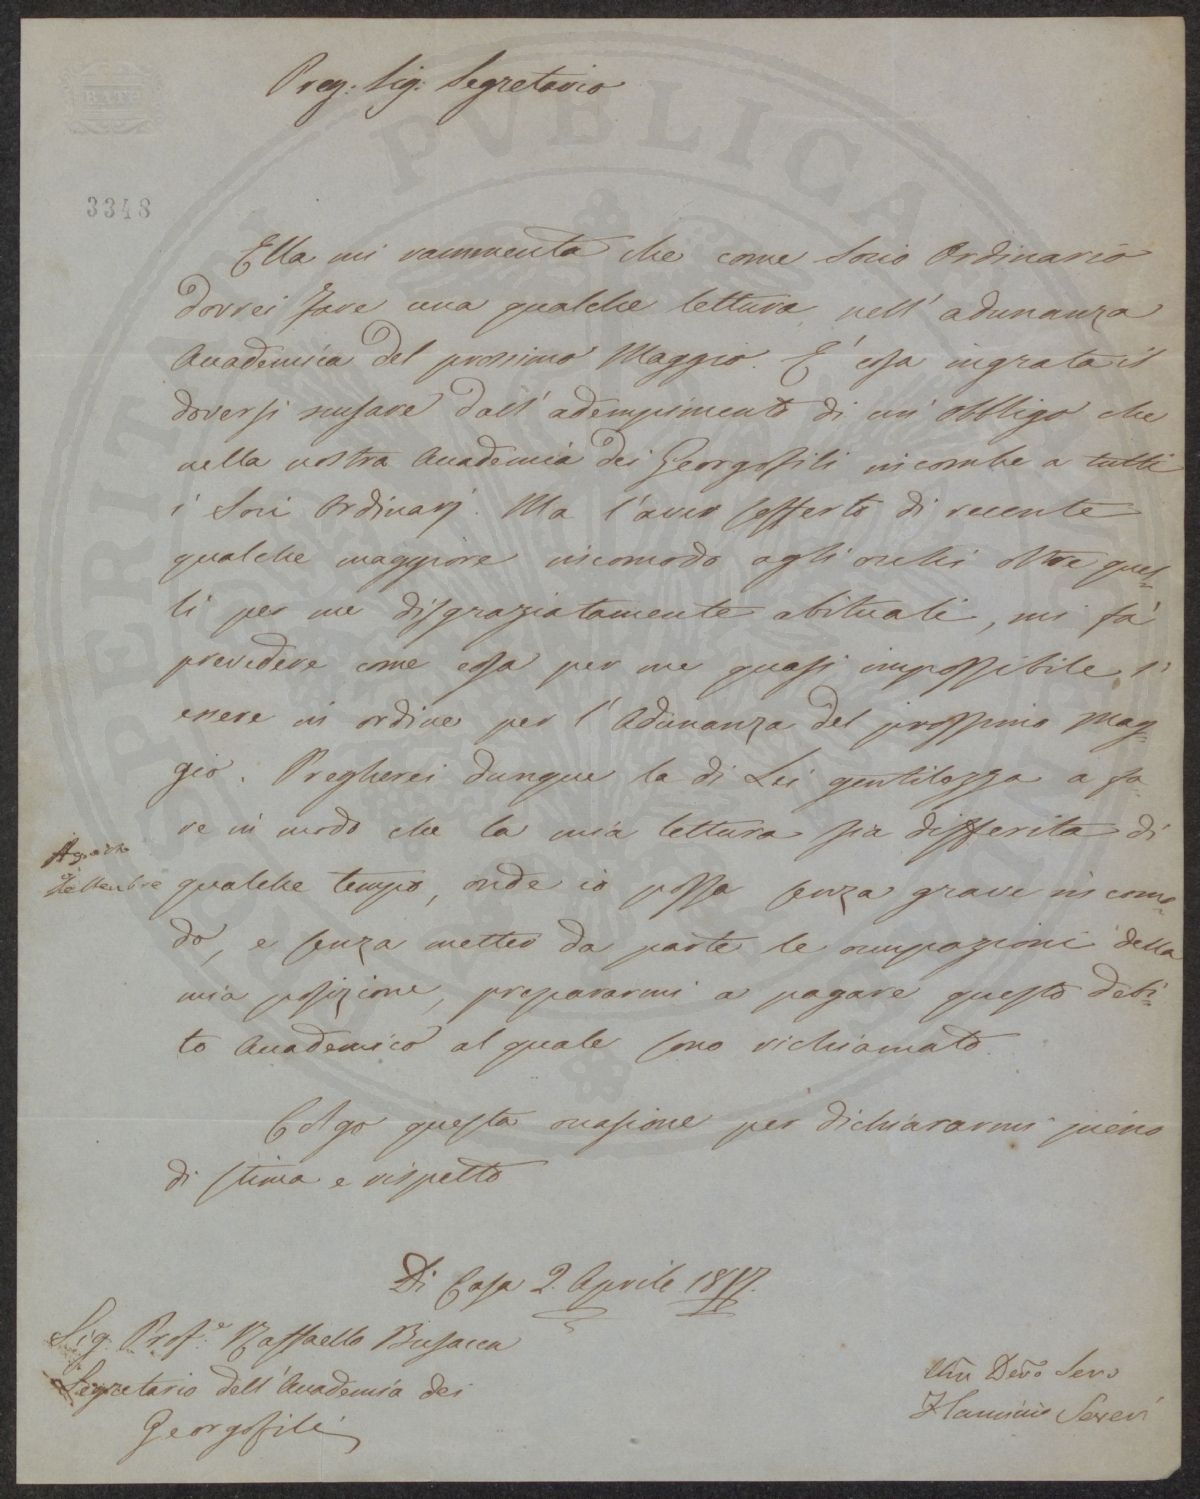 BATH
3348
Preg: Sig: Segretario
Ella mi rammenta che come Socio Ordinario
dovrei fare una qualche lettura nell' adunanza
Accademica del prossimo Maggio. E' cosa ingrata il
doversi scusare dall' adempimento di un' obbligo che
nella nostra Accademia dei Georgofili incombe a tutti
i Soci Ordinarj. Ma l'aver sofferto di recente
qualche maggiore incomodo agli occhi oltre quel=
li per me disgraziatamente abituali, mi fà
prevedere come cosa per me quasi impossibile l'
essere in ordine per l'Adunanza del prossimo Mag=
gio. Pregherei dunque la di Lei gentilezza a fa=
re in modo che la mia lettura sia differita di
Agosto
Settembre
qualche tempo, onde io possa senza grave incomo=
do, e senza metter da parte le occupazioni della
mia posizione, prepararmi a pagare questo debi=
to Accademico al quale sono richiamato.
Colgo questa occasione per dichiararmi pieno
di stima e rispetto
Di Casa 2. Aprile 1847.
Sig. Prof.e Raffaello Busacca
Segretario dell' Accademia dei
Georgofili
Dev̄o Servo
Flaminio Severi